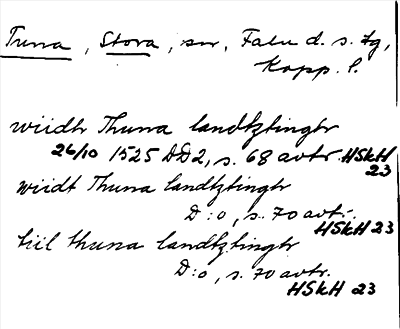 Tuna, Stora, sn, Falu d. s. tg,
Kopp. l.
wiidtr Thuna landtztingtr
26/10 1525 DD2, s. 68 avtr. HSkH
23
wiidt Thuna landtztingtr
D:o, s. 70 avtr.
HSkH 23
tiil thuna landtztingtr
D:o, s. 70 avtr.
HSkH 23